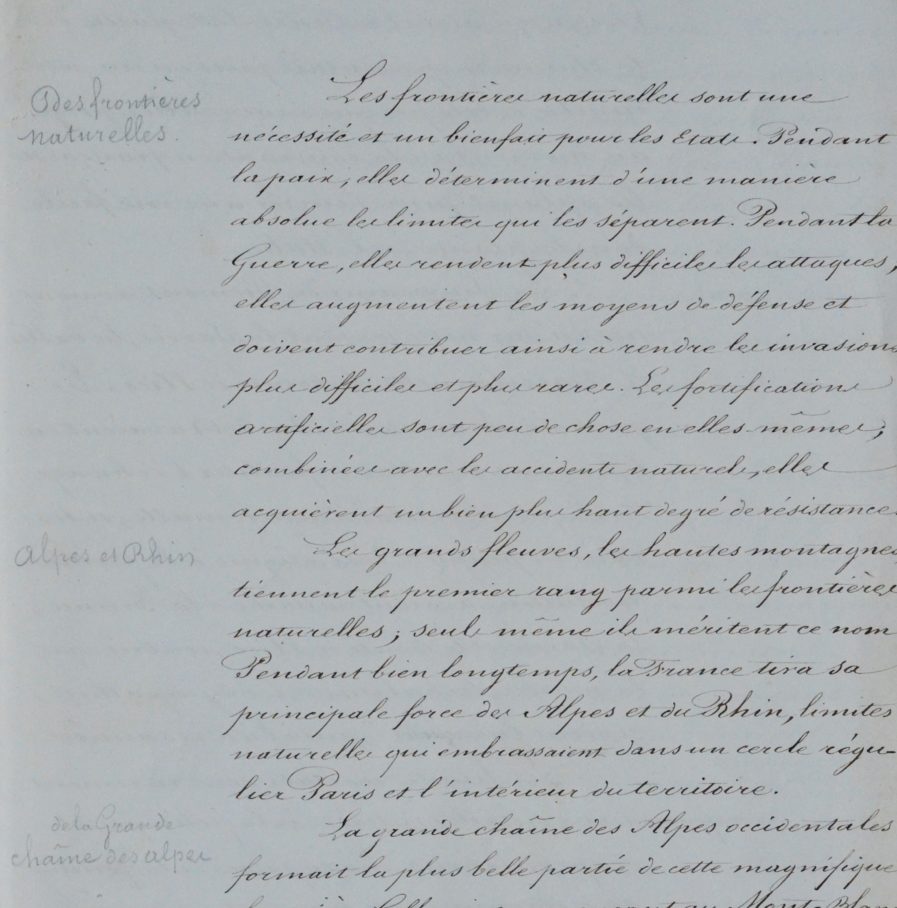 Des frontières
naturelles.
Les frontières naturelles sont une
nécessité et un bienfait pour les Etats. Pendant
la paix, elles déterminent d'une manière
absolue les limites qui les séparent. Pendant la
Guerre, elles rendent plus difficiles les attaques,
elles augmentent les moyens de défense et
doivent contribuer ainsi à rendre les invasions
plus difficiles et plus rares. Les fortifications
artificielles sont peu de chose en elles mêmes;
combinées avec les accidents naturels, elles
acquièrent un bien plus haut degré de résistance.
Alpes et Rhin
Les grands fleuves, les hautes montagnes
tiennent le premier rang parmi les frontières
naturelles; seuls même ils méritent ce nom
Pendant bien longtemps, la France tira sa
principale force des Alpes et du Rhin, limites
naturelles qui embrassaient dans un cercle régu-
lier Paris et l'intérieur du territoire.
de la Grande
chaîne des alpes
La grande chaîne des Alpes occidentales
formait la plus belle partie de cette magnifique
Mont-Blanc